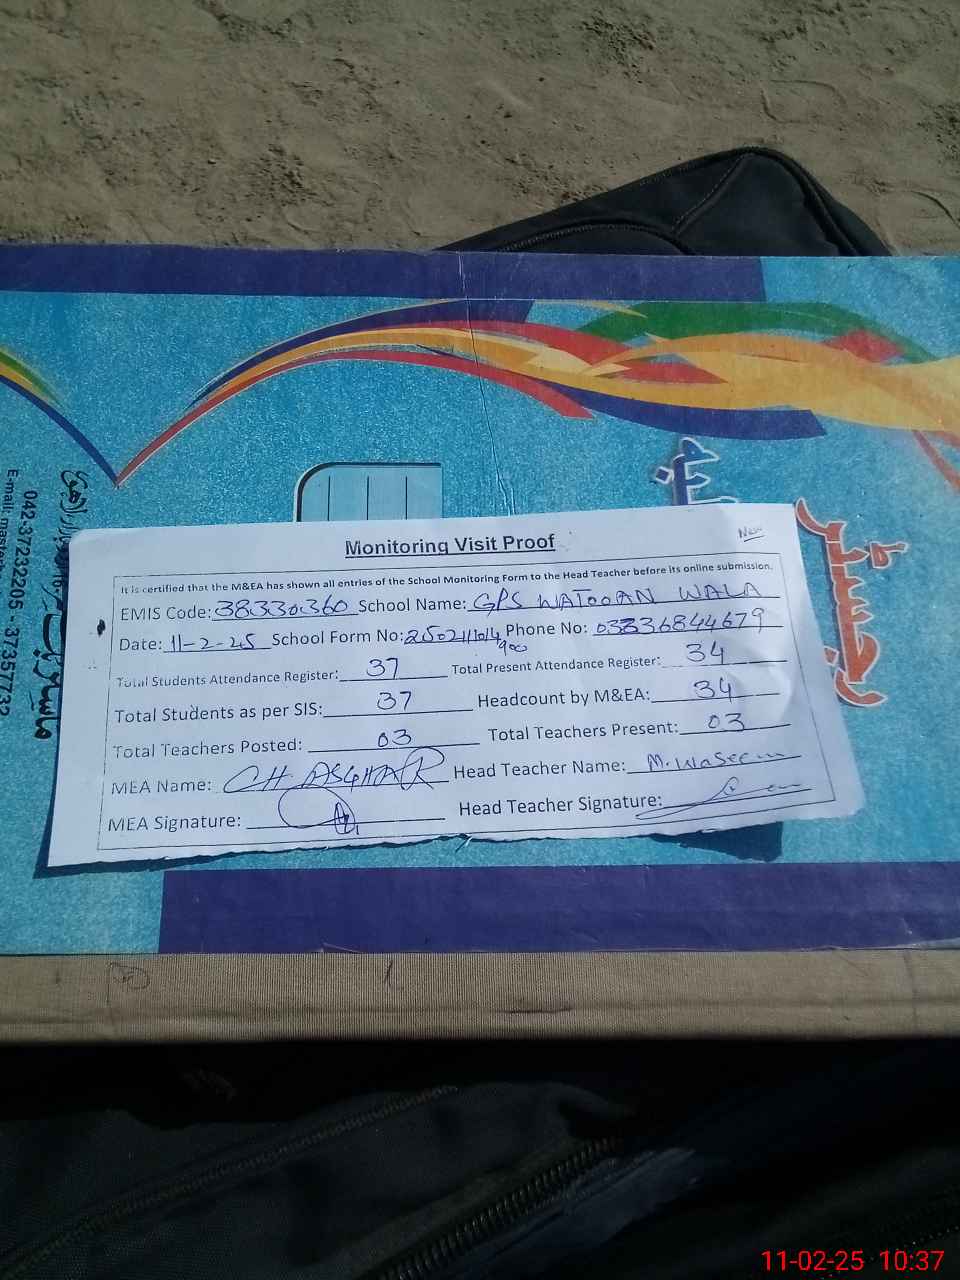 Monitoring Visit Proof
New
It is certified that the M&EA has shown all entries of the School Monitoring Form to the Head Teacher before its online submission.
EMIS Code: 38330360 School Name: GPS WATOOAN WALA
Date: 11-2-25 School Form No: Phone No:
Total Students Attendance Register: 37 Total Present Attendance Register: 34
Total Students as per SIS: 37 Headcount by M&EA: 34
Total Teachers Posted: 03 Total Teachers Present: 03
MEA Name: CH ASGHAR Head Teacher Name: M. Waseem
MEA Signature: Head Teacher Signature:
رجسٹر
042-37232205 - 37357732
E-mail:
11-02-25 10:37